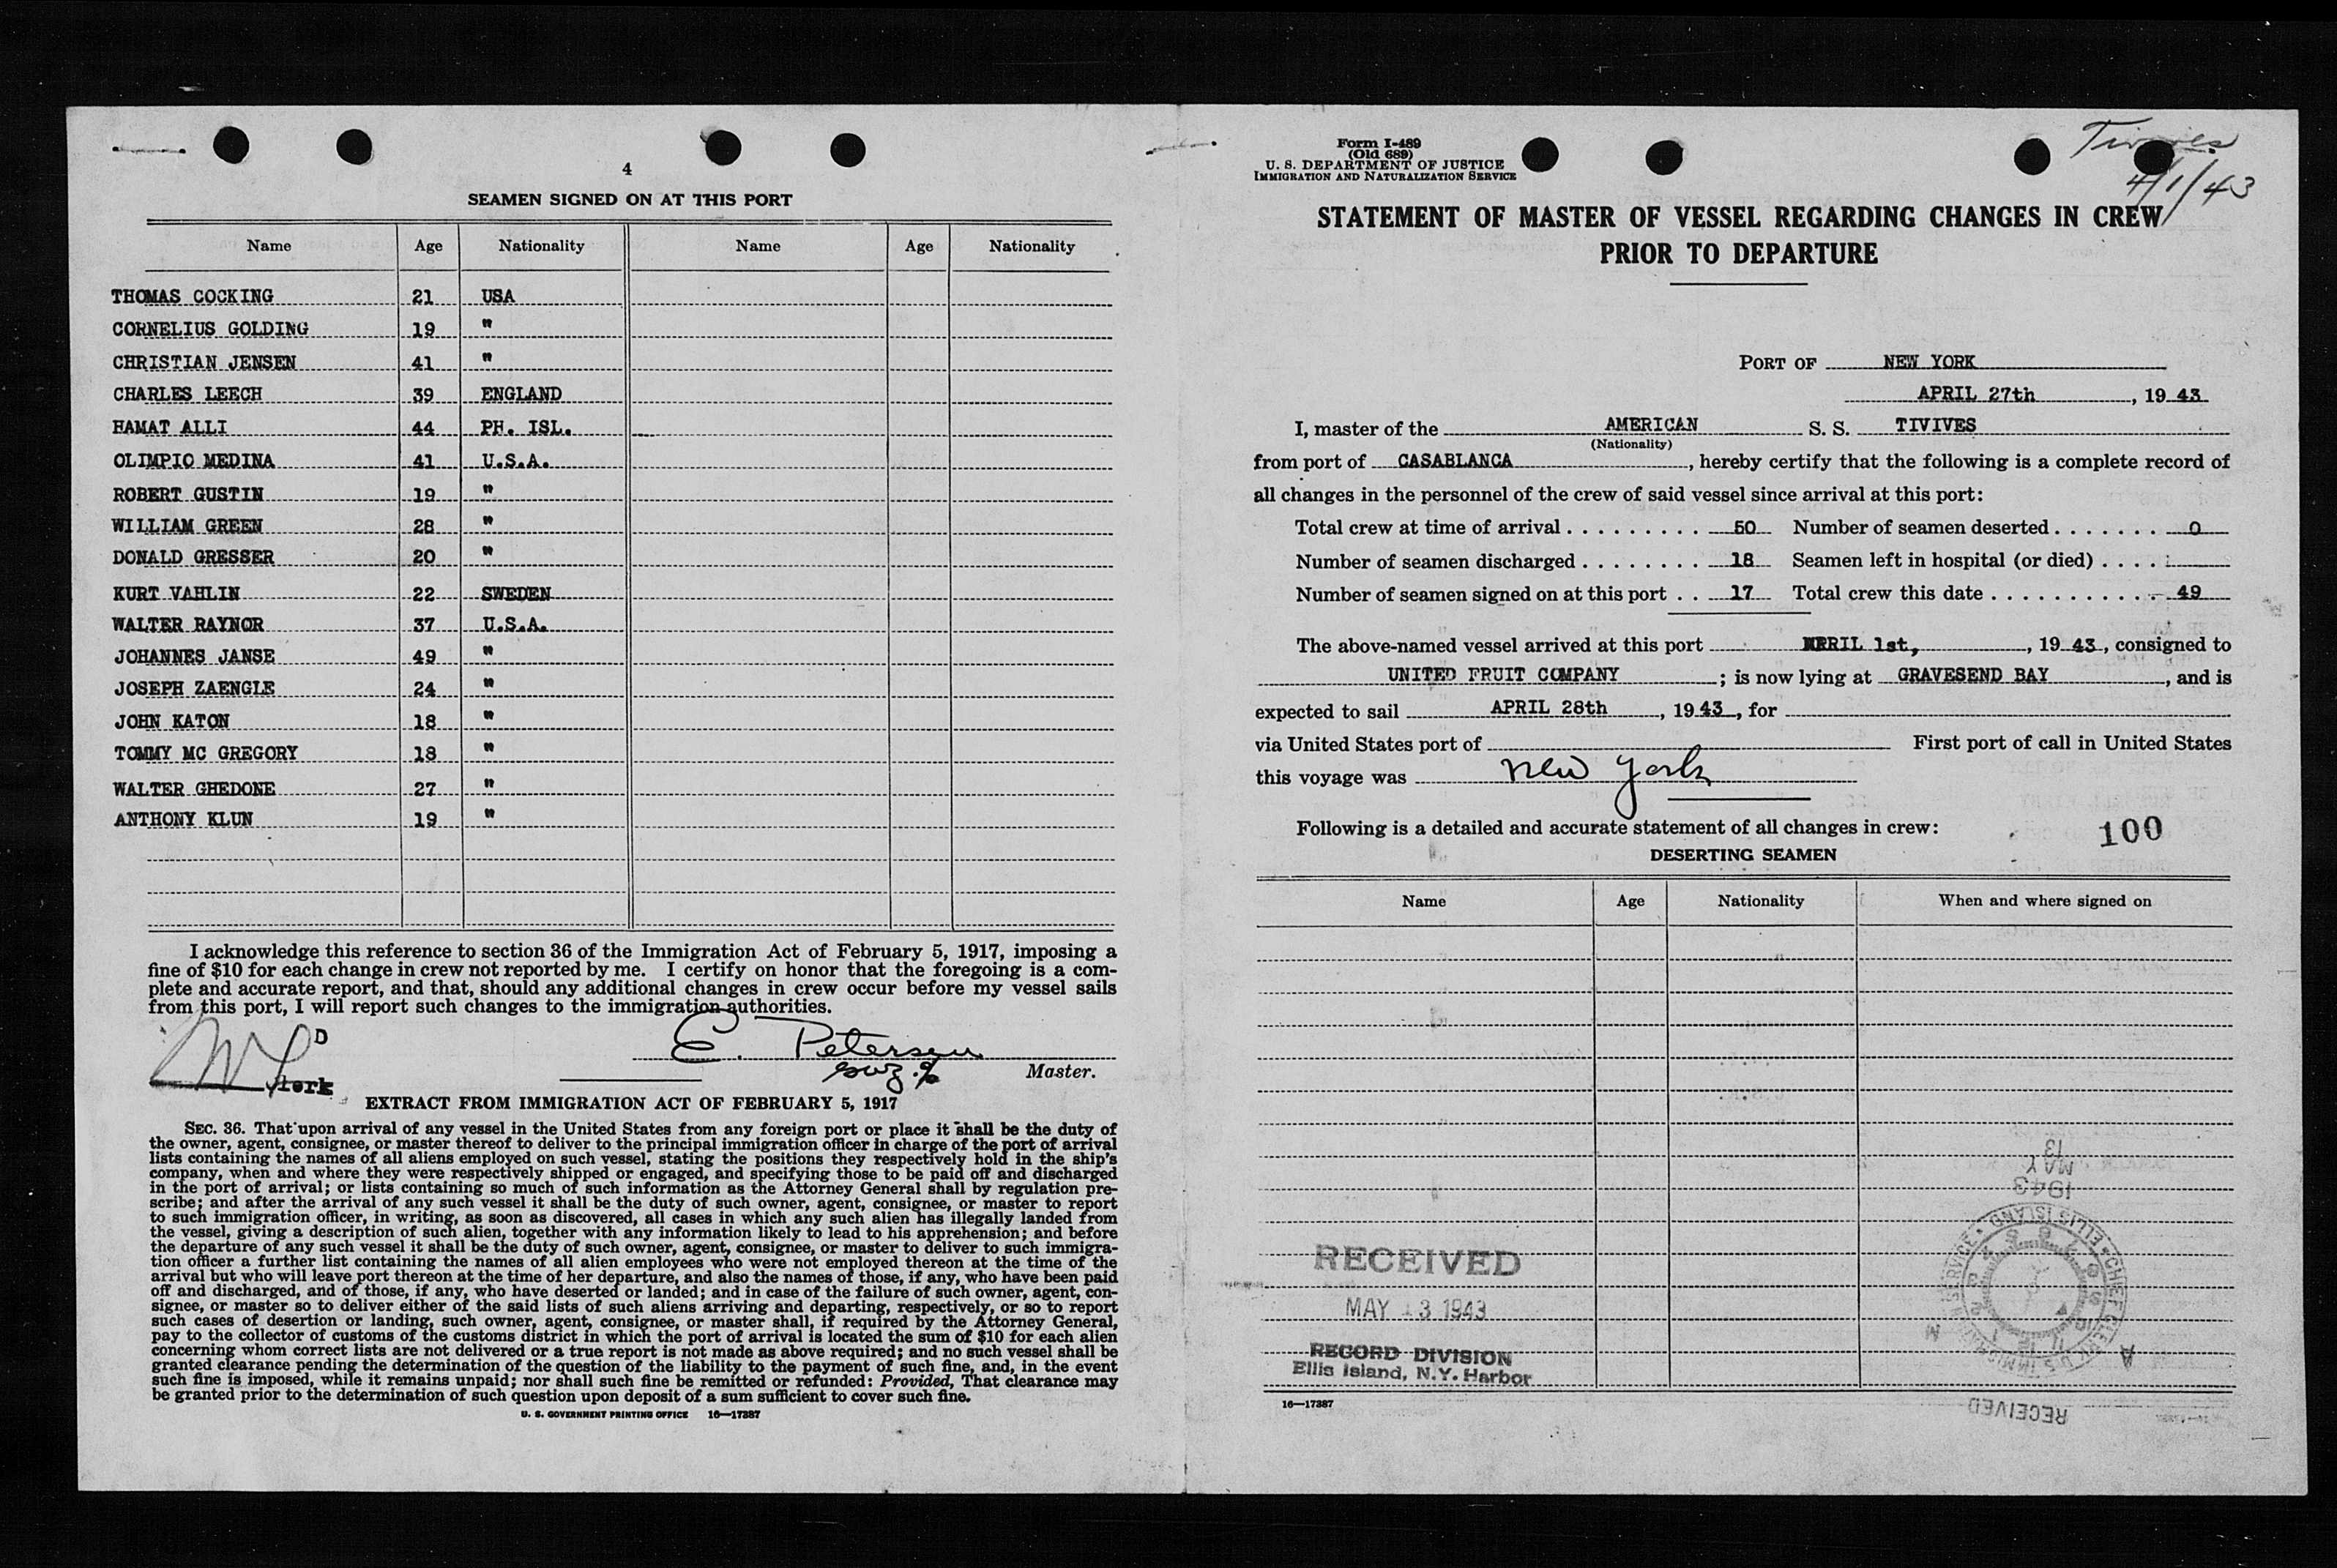 4
SEAMEN SIGNED ON AT THIS PORT
Name Age Nationality Name Age Nationality
THOMAS COCKING 21 USA
CORNELIUS GOLDING 19 "
CHRISTIAN JENSEN 41 "
CHARLES LEECH 39 ENGLAND
HAMAT ALLI 44 PH. ISL.
OLIMPIO MEDINA 41 U.S.A.
ROBERT GUSTIN 19 "
WILLIAM GREEN 28 "
DONALD GRESSER 20 "
KURT VAHLIN 22 SWEDEN
WALTER RAYNOR 37 U.S.A.
JOHANNES JANSE 49 "
JOSEPH ZAENGLE 24 "
JOHN KATON 18 "
TOMMY MC GREGORY 18 "
WALTER GHEDONE 27 "
ANTHONY KLUN 19 "
I acknowledge this reference to section 36 of the Immigration Act of February 5, 1917, imposing a
fine of $10 for each change in crew not reported by me. I certify on honor that the foregoing is a com-
plete and accurate report, and that, should any additional changes in crew occur before my vessel sails
from this port, I will report such changes to the immigration authorities.
E. Petersen
Clerk
Master.
EXTRACT FROM IMMIGRATION ACT OF FEBRUARY 5, 1917
SEC. 36. That upon arrival of any vessel in the United States from any foreign port or place it shall be the duty of
the owner, agent, consignee, or master thereof to deliver to the principal immigration officer in charge of the port of arrival
lists containing the names of all aliens employed on such vessel, stating the positions they respectively hold in the ship's
company, when and where they were respectively shipped or engaged, and specifying those to be paid off and discharged
in the port of arrival; or lists containing so much of such information as the Attorney General shall by regulation pre-
scribe; and after the arrival of any such vessel it shall be the duty of such owner, agent, consignee, or master to report
to such immigration officer, in writing, as soon as discovered, all cases in which any such alien has illegally landed from
the vessel, giving a description of such alien, together with any information likely to lead to his apprehension; and before
the departure of any such vessel it shall be the duty of such owner, agent, consignee, or master to deliver to such immigra-
tion officer a further list containing the names of all alien employees who were not employed thereon at the time of the
arrival but who will leave port thereon at the time of her departure, and also the names of those, if any, who have been paid
off and discharged, and of those, if any, who have deserted or landed; and in case of the failure of such owner, agent, con-
signee, or master so to deliver either of the said lists of such aliens arriving and departing, respectively, or so to report
such cases of desertion or landing, such owner, agent, consignee, or master shall, if required by the Attorney General,
pay to the collector of customs of the customs district in which the port of arrival is located the sum of $10 for each alien
concerning whom correct lists are not delivered or a true report is not made as above required; and no such vessel shall be
granted clearance pending the determination of the question of the liability to the payment of such fine, and, in the event
such fine is imposed, while it remains unpaid; nor shall such fine be remitted or refunded: Provided, That clearance may
be granted prior to the determination of such question upon deposit of a sum sufficient to cover such fine.
U. S. GOVERNMENT PRINTING OFFICE 16—17387
Form I-489
(Old 689)
U. S. DEPARTMENT OF JUSTICE
IMMIGRATION AND NATURALIZATION SERVICE
Tivives
4/1/43
STATEMENT OF MASTER OF VESSEL REGARDING CHANGES IN CREW
PRIOR TO DEPARTURE
PORT OF NEW YORK
APRIL 27th, 19 43
I, master of the AMERICAN S. S. TIVIVES
(Nationality)
from port of CASABLANCA, hereby certify that the following is a complete record of
all changes in the personnel of the crew of said vessel since arrival at this port:
Total crew at time of arrival 50 Number of seamen deserted 0
Number of seamen discharged 18 Seamen left in hospital (or died)
Number of seamen signed on at this port 17 Total crew this date 49
The above-named vessel arrived at this port APRIL 1st, , 19 43, consigned to
UNITED FRUIT COMPANY ; is now lying at GRAVESEND BAY, and is
expected to sail APRIL 28th, 19 43, for
via United States port of First port of call in United States
this voyage was New York
Following is a detailed and accurate statement of all changes in crew:
100
DESERTING SEAMEN
Name Age Nationality When and where signed on
1943
MAY
13
CHIEF CLERK U.S. IMMIGRATION SERVICE • ELLIS ISLAND •
A M
RECEIVED
RECEIVED
MAY 13 1943
RECORD DIVISION
Ellis Island, N.Y. Harbor
16—17387